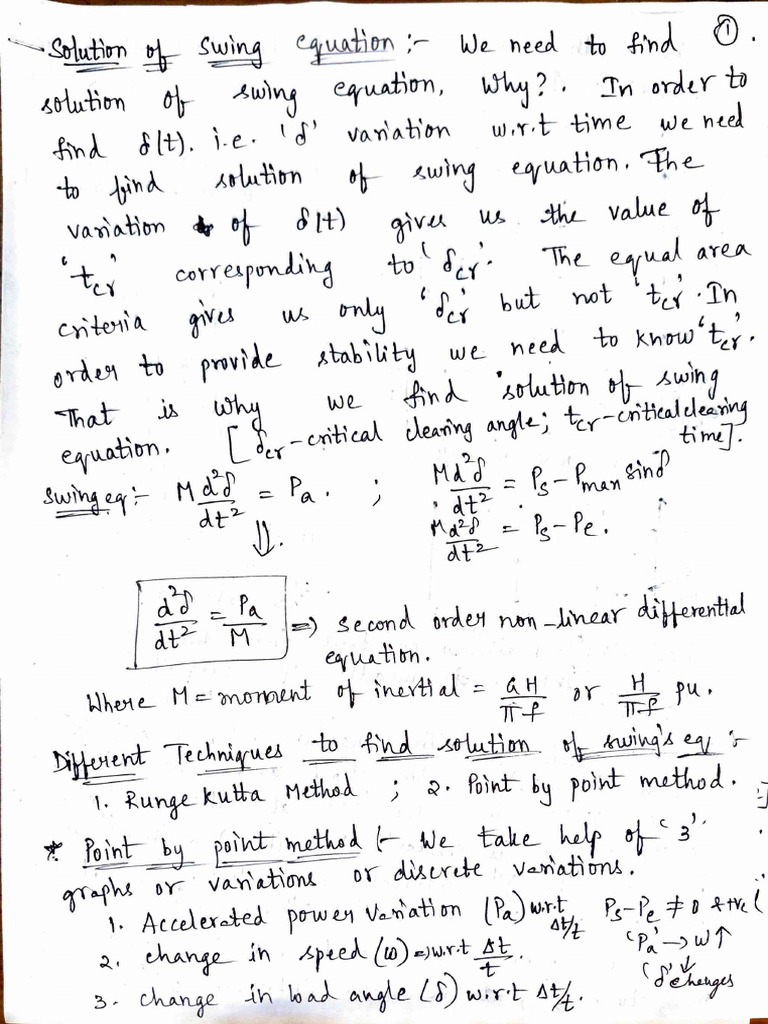 Solution of swing equation :- We need to find ①.
solution of swing equation, Why?. In order to
find δ(t). i.e. 'δ' variation w.r.t time we need
to find solution of swing equation. The
variation of δ(t) gives us the value of
'tcr' corresponding to 'δcr'. The equal area
criteria gives us only 'δcr' but not 'tcr'. In
order to provide stability we need to know 'tcr'.
That is why we find solution of swing
equation. [δcr - critical clearing angle; tcr - critical clearing
time].
Swing eq :- M d²δ/dt² = Pa. ; M d²δ/dt² = Ps - Pmax sinδ
⇓. M d²δ/dt² = Ps - Pe.
d²δ/dt² = Pa/M ⇒ second order non-linear differential
equation.
Where M = moment of inertial = GH/πf or H/πf pu.
Different Techniques to find solution of swing's eq :-
1. Runge Kutta Method ; 2. Point by point method.
* Point by point method :- We take help of '3'
graphs or variations or discrete variations.
1. Accelerated power variation (Pa) w.r.t Δt/t Ps - Pe ≠ 0 +ve (
2. change in speed (ω) ⇒ w.r.t Δt/t. 'Pa' → ω↑
3. change in load angle (δ) w.r.t Δt/t. ↓ 'δ' changes